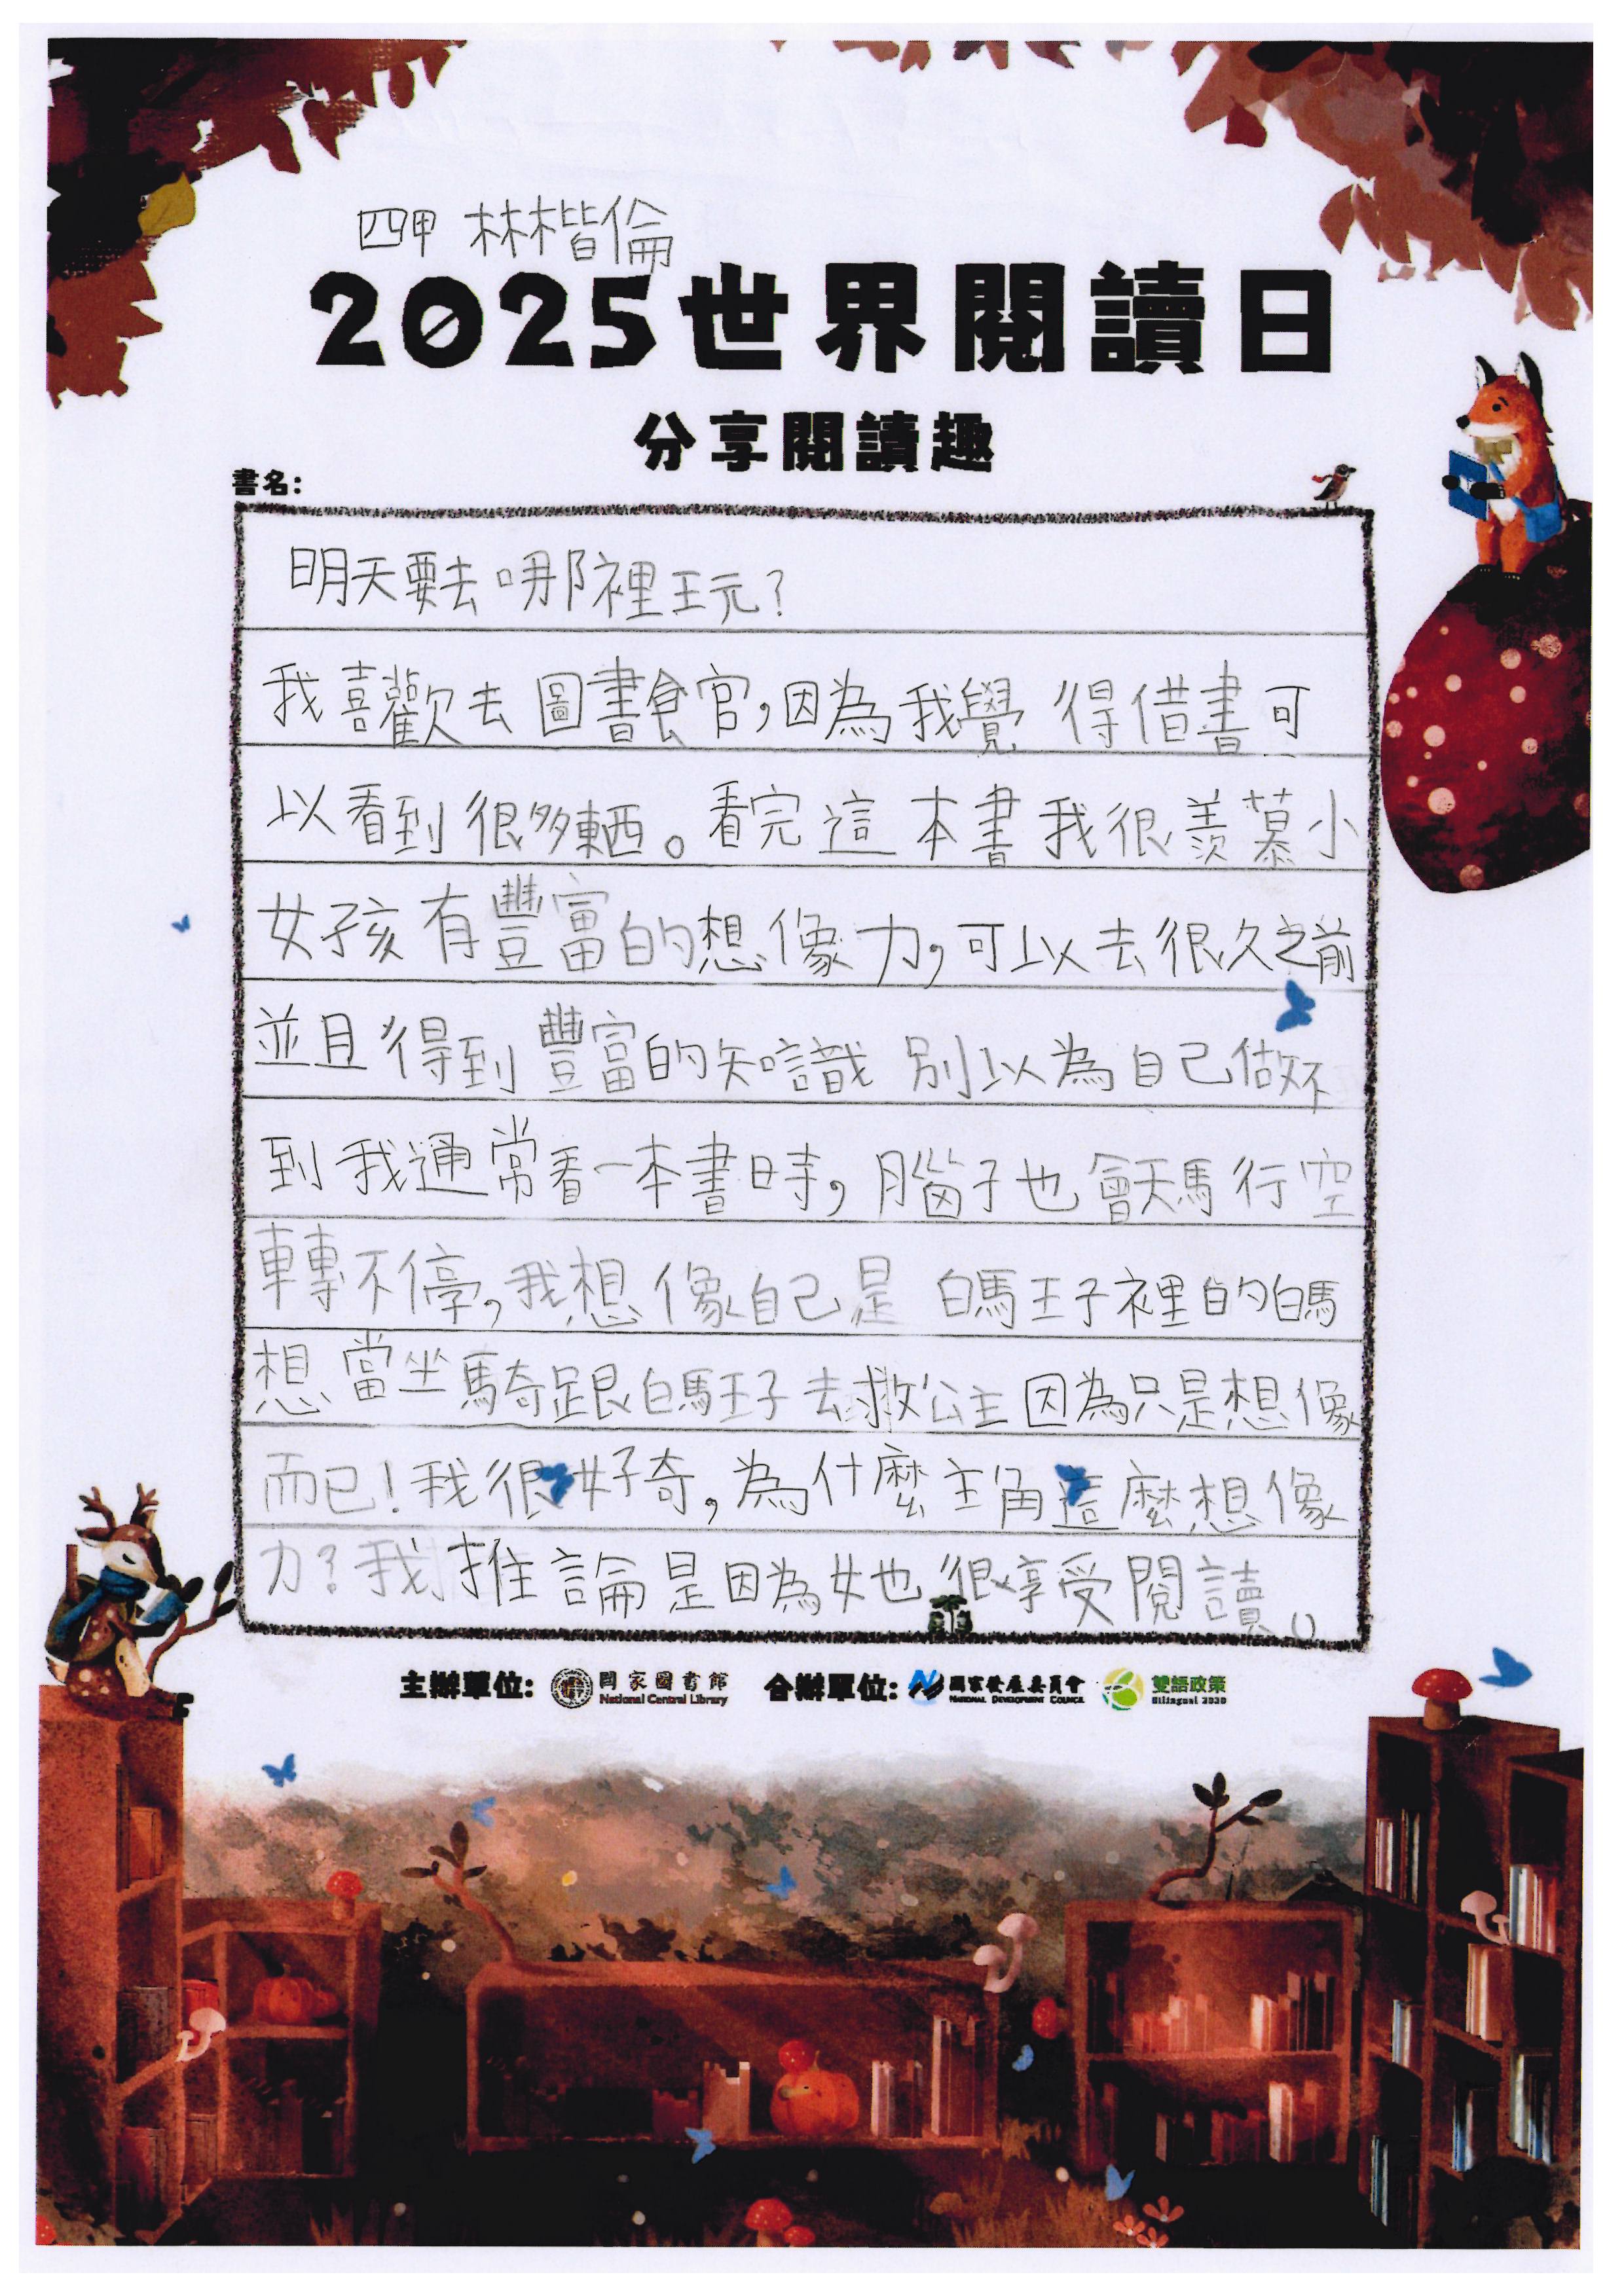 四甲 林楷倫
2025世界閱讀日
分享閱讀趣
書名:
明天要去哪裡玩?
我喜歡去圖書館,因為我覺得借書可
以看到很多東西。看完這本書我很羨慕小
女孩有豐富的想像力,可以去很久之前
並且得到豐富的知識 別以為自己做不
到我通常看一本書時,腦子也會天馬行空
轉不停,我想像自己是 白馬王子裡的白馬
想當坐騎跟白馬王子去救公主因為只是想像
而已!我很好奇,為什麼主角這麼想像
力?我推論是因為她很享受閱讀。
主辦單位: 國家圖書館 合辦單位: 國家發展委員會 雙語政策
National Central Library NATIONAL DEVELOPMENT COUNCIL Bilingual 2030